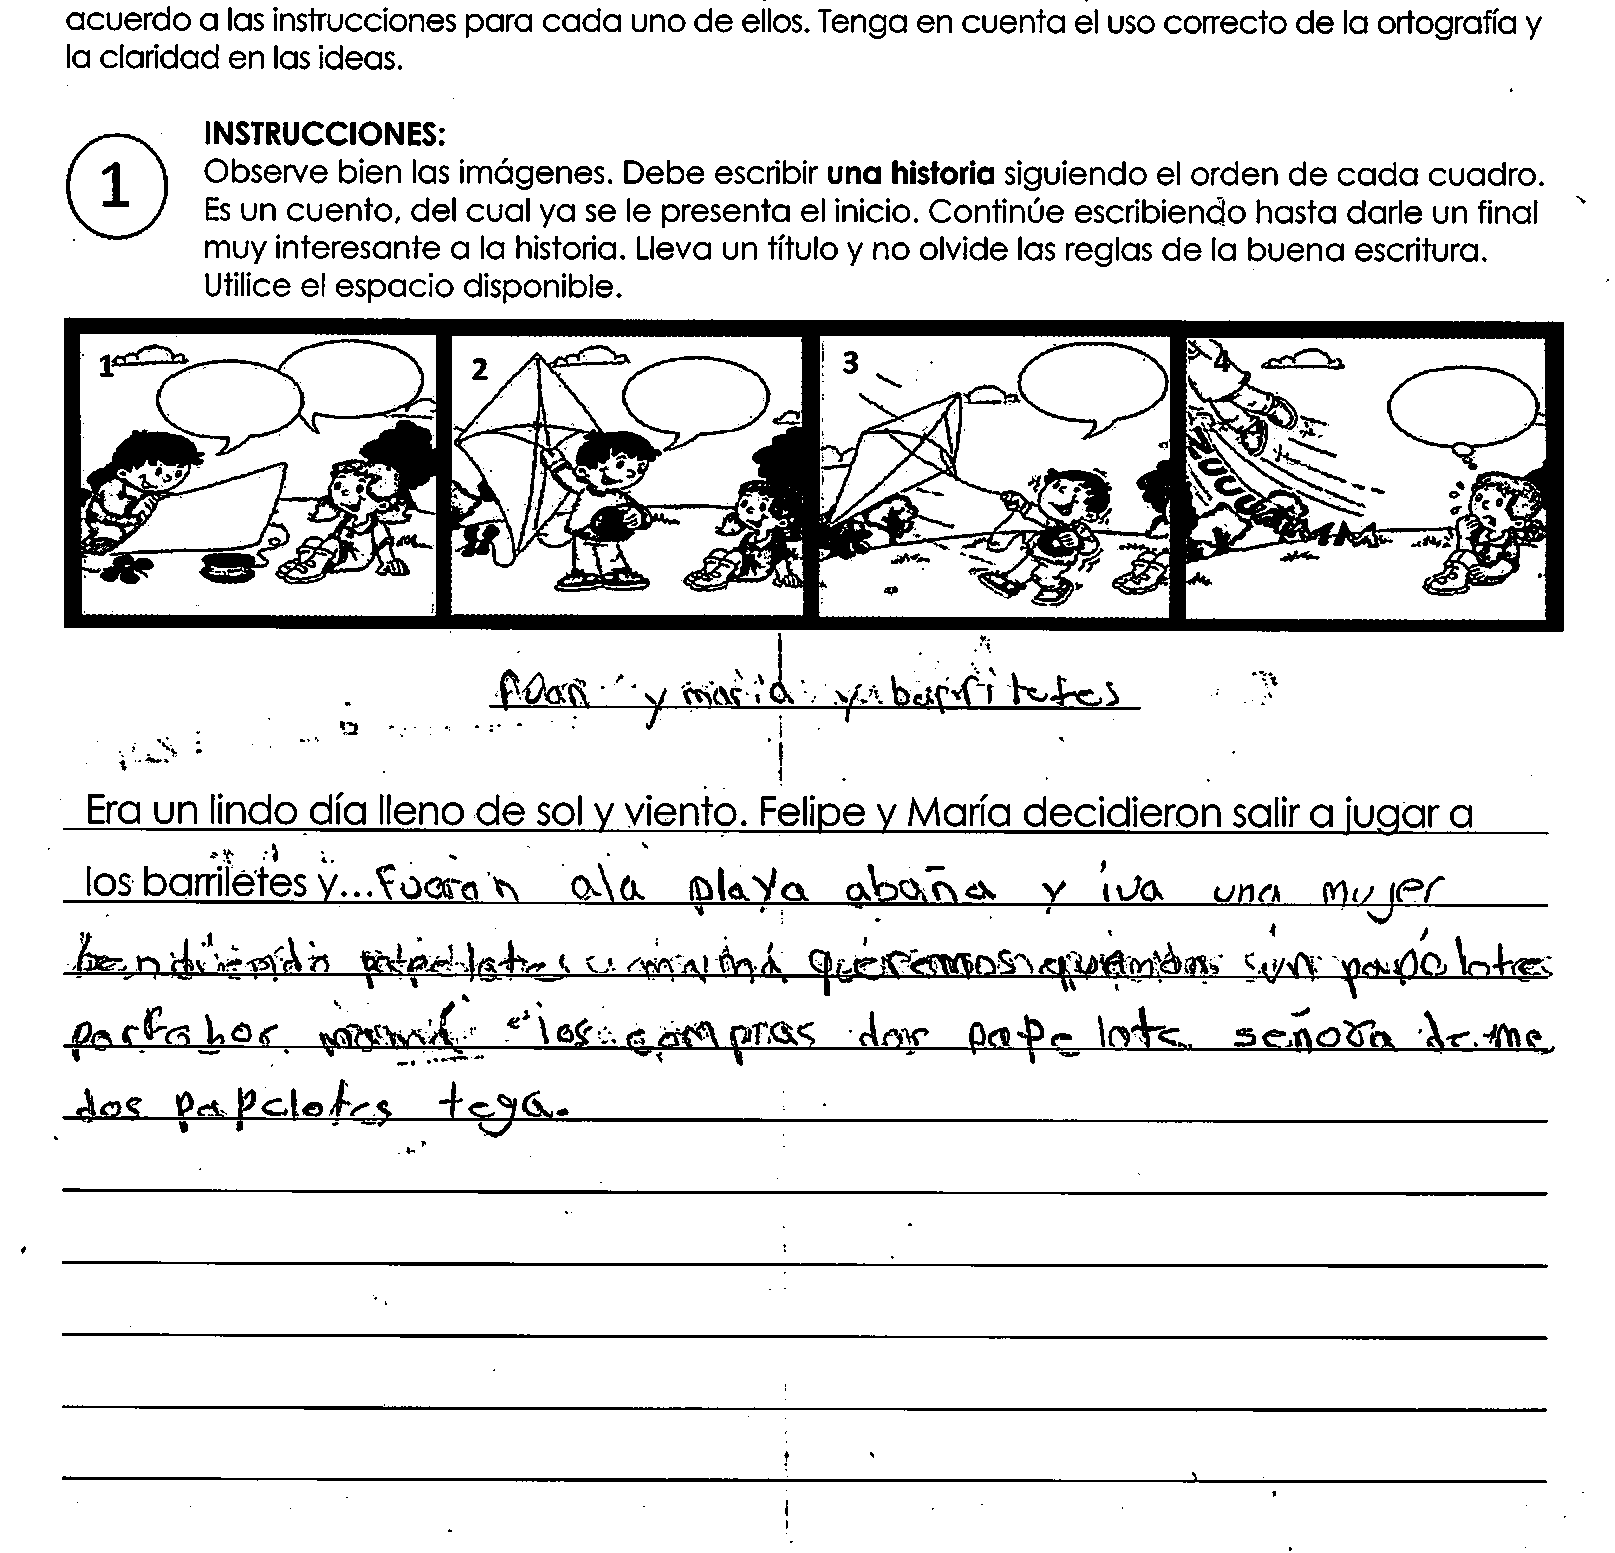 acuerdo a las instrucciones para cada uno de ellos. Tenga en cuenta el uso correcto de la ortografía y
la claridad en las ideas.
1
INSTRUCCIONES:
Observe bien las imágenes. Debe escribir una historia siguiendo el orden de cada cuadro.
Es un cuento, del cual ya se le presenta el inicio. Continúe escribiendo hasta darle un final
muy interesante a la historia. Lleva un título y no olvide las reglas de la buena escritura.
Utilice el espacio disponible.
1 2 3 4
y maria y barriletes
Era un lindo día lleno de sol y viento. Felipe y María decidieron salir a jugar a
los barriletes y... Fueron ala playa abaña y iva una mujer
bendiendo papelotes y mamá queremos un papelotes
porfabor mamá los compras dor papelote señora deme
dos papelotes tega.